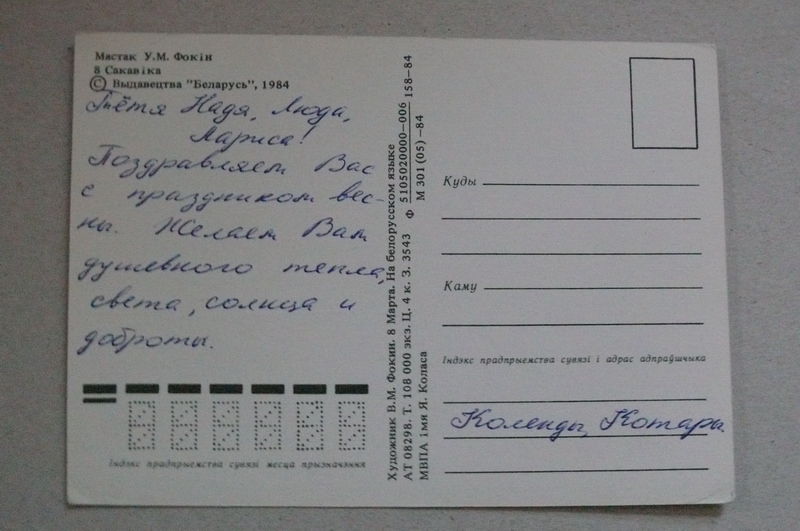 Мастак У.М. Фокін
8 Сакавіка
© Выдавецтва "Беларусь", 1984
Тётя Надя, Люда,
Лариса!
Поздравляем Вас
с праздником вес-
ны. Желаем Вам
душевного тепла,
света, солнца и
доброты.
Індэкс прадпрыемства сувязі месца прызначэння
Художник В.М. Фокин. 8 Марта. На белорусском языке
АТ 08298. Т. 108 000 экз. Ц. 4 к. З. 3543 Ф 5105020000—006 158—84
М 301 (05) —84
МВПА імя Я. Коласа
Куды
Каму
Індэкс прадпрыемства сувязі і адрас адпраўшчыка
Коленды, Котары.